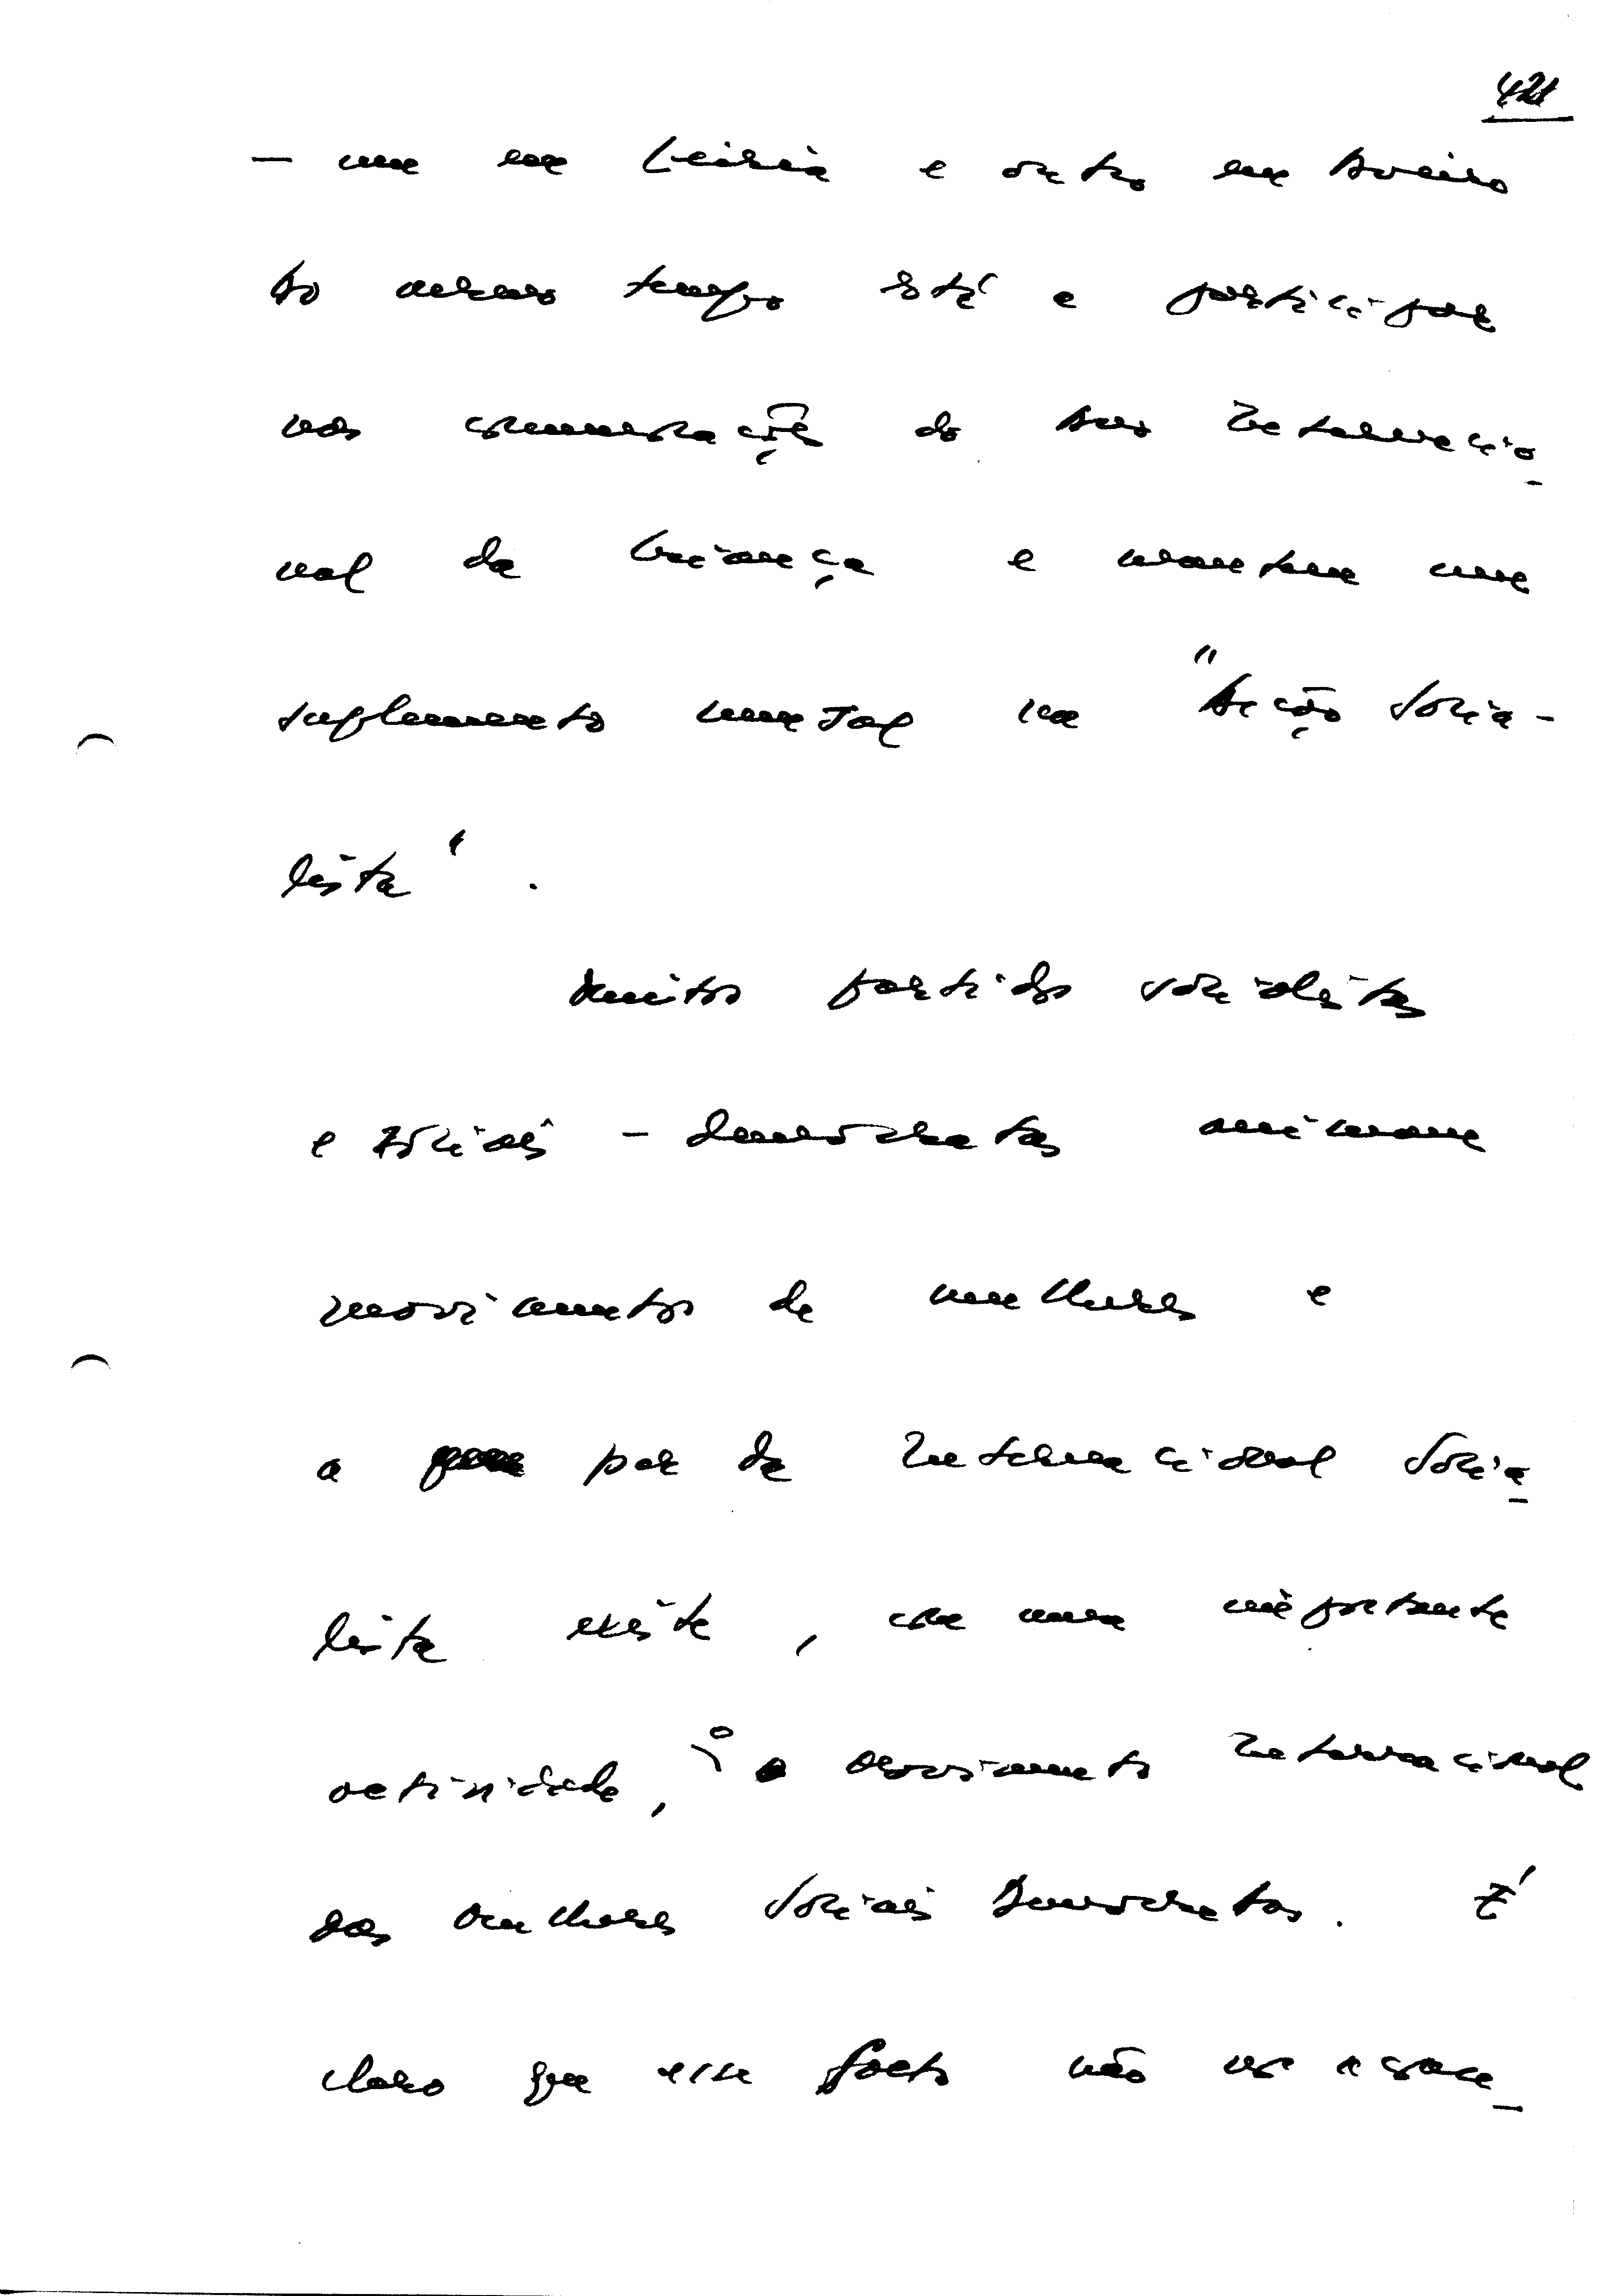 421
- um em Leiria e outro em Aveiro
Ao mesmo tempo está a participar
nas comemorações do Ano Internacio-
nal da Criança e mantem um
suplemento mensal na "Acção Socia-
lista".
Muitos partidos socialistas
e sociais-democratas animam
movimentos de mulheres e
a par da Internacional Socia-
lista existe, com uma importante
actividade, o Movimento Internacional
das Mulheres Sociais Democratas. É
claro que esse facto não vos esque-